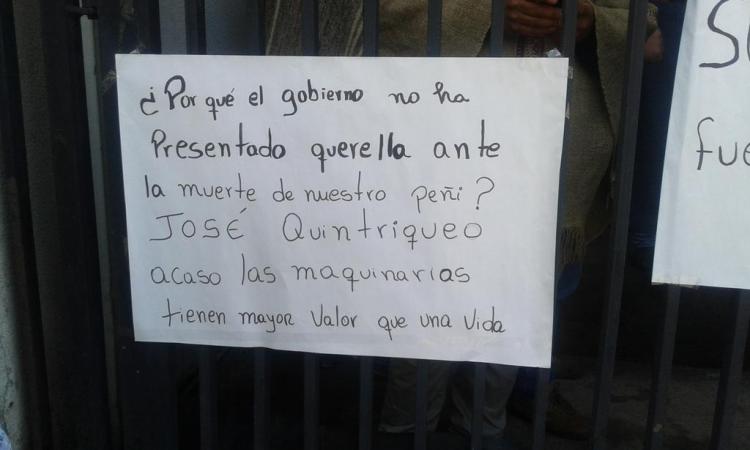 ¿Por qué el gobierno no ha
Presentado querella ante
la muerte de nuestro peñi?
JOSÉ Quintriqueo
acaso las maquinarias
tienen mayor valor que una vida
fue